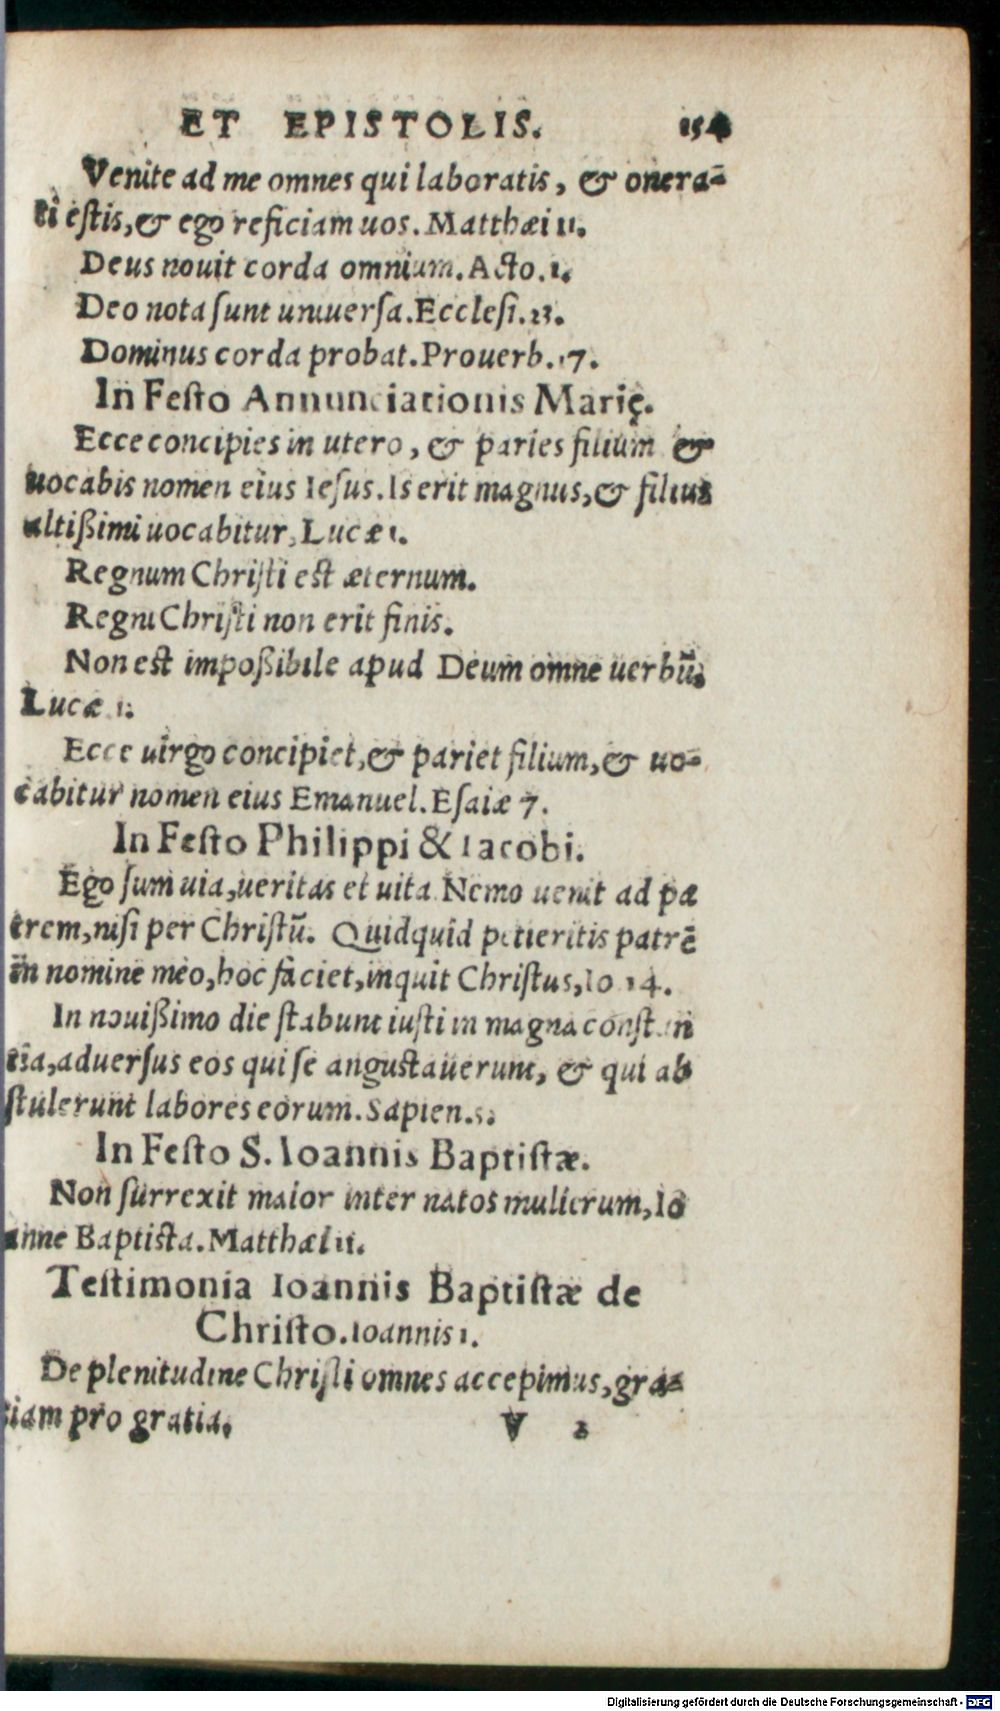 ET EPISTOLIS. 154
Venite ad me omnes qui laboratis, & onera-
ti estis, & ego reficiam uos. Matthæi 11.
Deus nouit corda omnium. Acto. 1.
Deo nota sunt uniuersa. Ecclesi. 23.
Dominus corda probat. Prouerb. 17.
In Festo Annunciationis Marię.
Ecce concipies in utero, & paries filium &
uocabis nomen eius Iesus. Is erit magnus, & filius
altißimi uocabitur, Lucæ 1.
Regnum Christi est æternum.
Regni Christi non erit finis.
Non est impoßibile apud Deum omne uerbũ.
Lucæ 1.
Ecce uirgo concipiet, & pariet filium, & uo-
cabitur nomen eius Emanuel. Esaiæ 7.
In Festo Philippi & Iacobi.
Ego sum uia, ueritas et uita. Nemo uenit ad pa
trem, nisi per Christũ. Quidquid petieritis patrẽ
in nomine meo, hoc faciet, inquit Christus, Io 14.
In nouißimo die stabunt iusti in magna constan
tia, aduersus eos qui se angustauerunt, & qui ab
stulerunt labores eorum. Sapien. 5.
In Festo S. Ioannis Baptistæ.
Non surrexit maior inter natos mulierum, Io
anne Baptista. Matthæi 11.
Testimonia Ioannis Baptistæ de
Christo. Ioannis 1.
De plenitudine Christi omnes accepimus, gra-
tiam pro gratia.
V 2
Digitalisierung gefördert durch die Deutsche Forschungsgemeinschaft - DFG